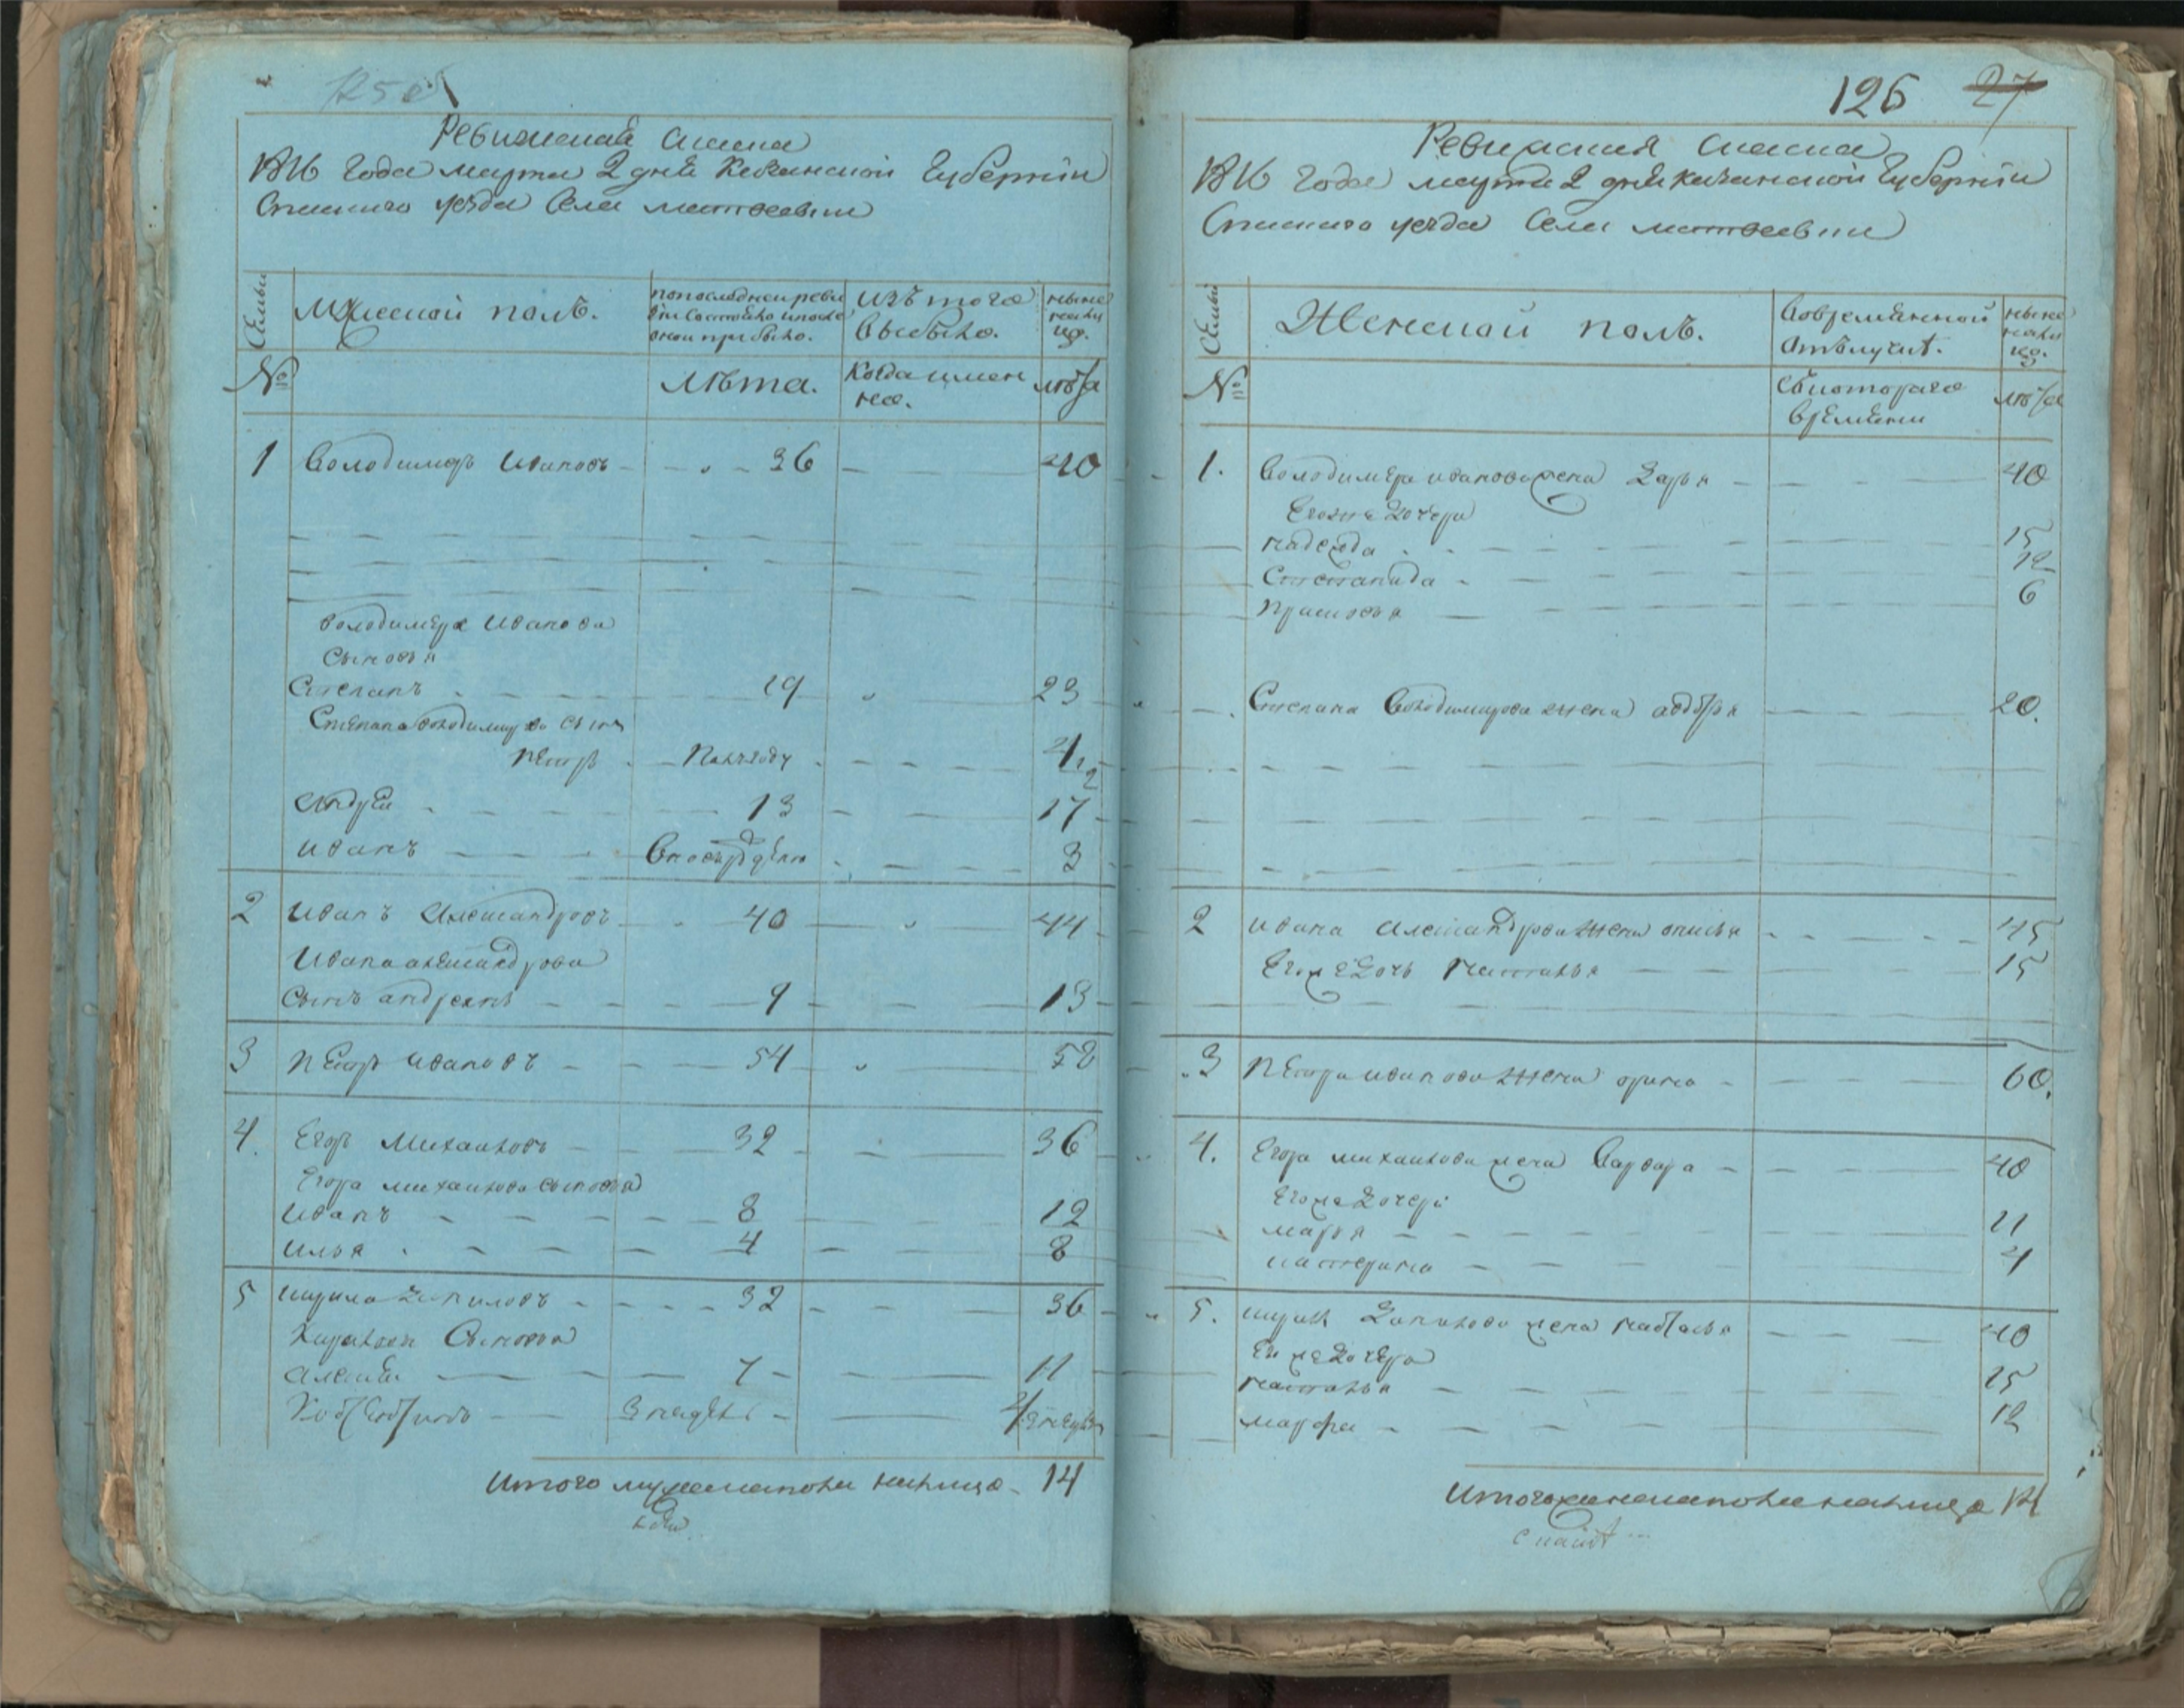 125об
Ревижская скаска
1816 года марта 2 дня Казанской Губернiи
Спаскаго уезда Села матвеевки
Семьи
Мужеской полъ.
попоследней реви
зiи состояло и после
оной прибыло.
изъ того
выбыло.
ныне
налиц
цо.
№
Лѣта.
Когда имен
но.
лѣта
1 Володимиръ Ивановъ 36 40
Володимера Иванова
Сыновья
Степанъ 19 23
Степана володимирова сынъ
Петръ Полъгоду 4 1/2
Андрей 13 17
иванъ Вновьрожденъ 3
2 иванъ Александровъ 40 44
Ивана александрова
Сынъ андреянъ 9 13
3 Петръ ивановъ 54 58
4. Егоръ Михаиловъ 32 36
Егора михаилова сыновья
Иванъ 8 12
илья 4 8
5 кирила Даниловъ 32 36
Кирилы Сыновья
алексей 7 11
3 недель
Итого мужеска пола налицо 14
126 27
Ревижская скаска
1816 года марта 2 дня казанской Губернiи
Спаскаго уезда Села матвеевки
Семьи
Женской полъ.
Вовременной
отълучке.
ныне
нали
цо.
№
Скотораго
времени
лѣта
1. Володимера иванова жена Дарья 40
Егоже дочери
надежда 15
Степанида 12
Прасковья 6
Степана Володимирова жена авдотья 20.
2 ивана Александрова жена 45
Егоже Дочь Наталья 15
3 Петра иванова жена арина 60.
4. Егора михаилова жена Варвара 40
Егоже дочери
марья 11
катерина 4
5. кирилы Данилова жена настасья 40
Егоже дочери
наталья 15
марфа 12
Итого женска пола налицо 14